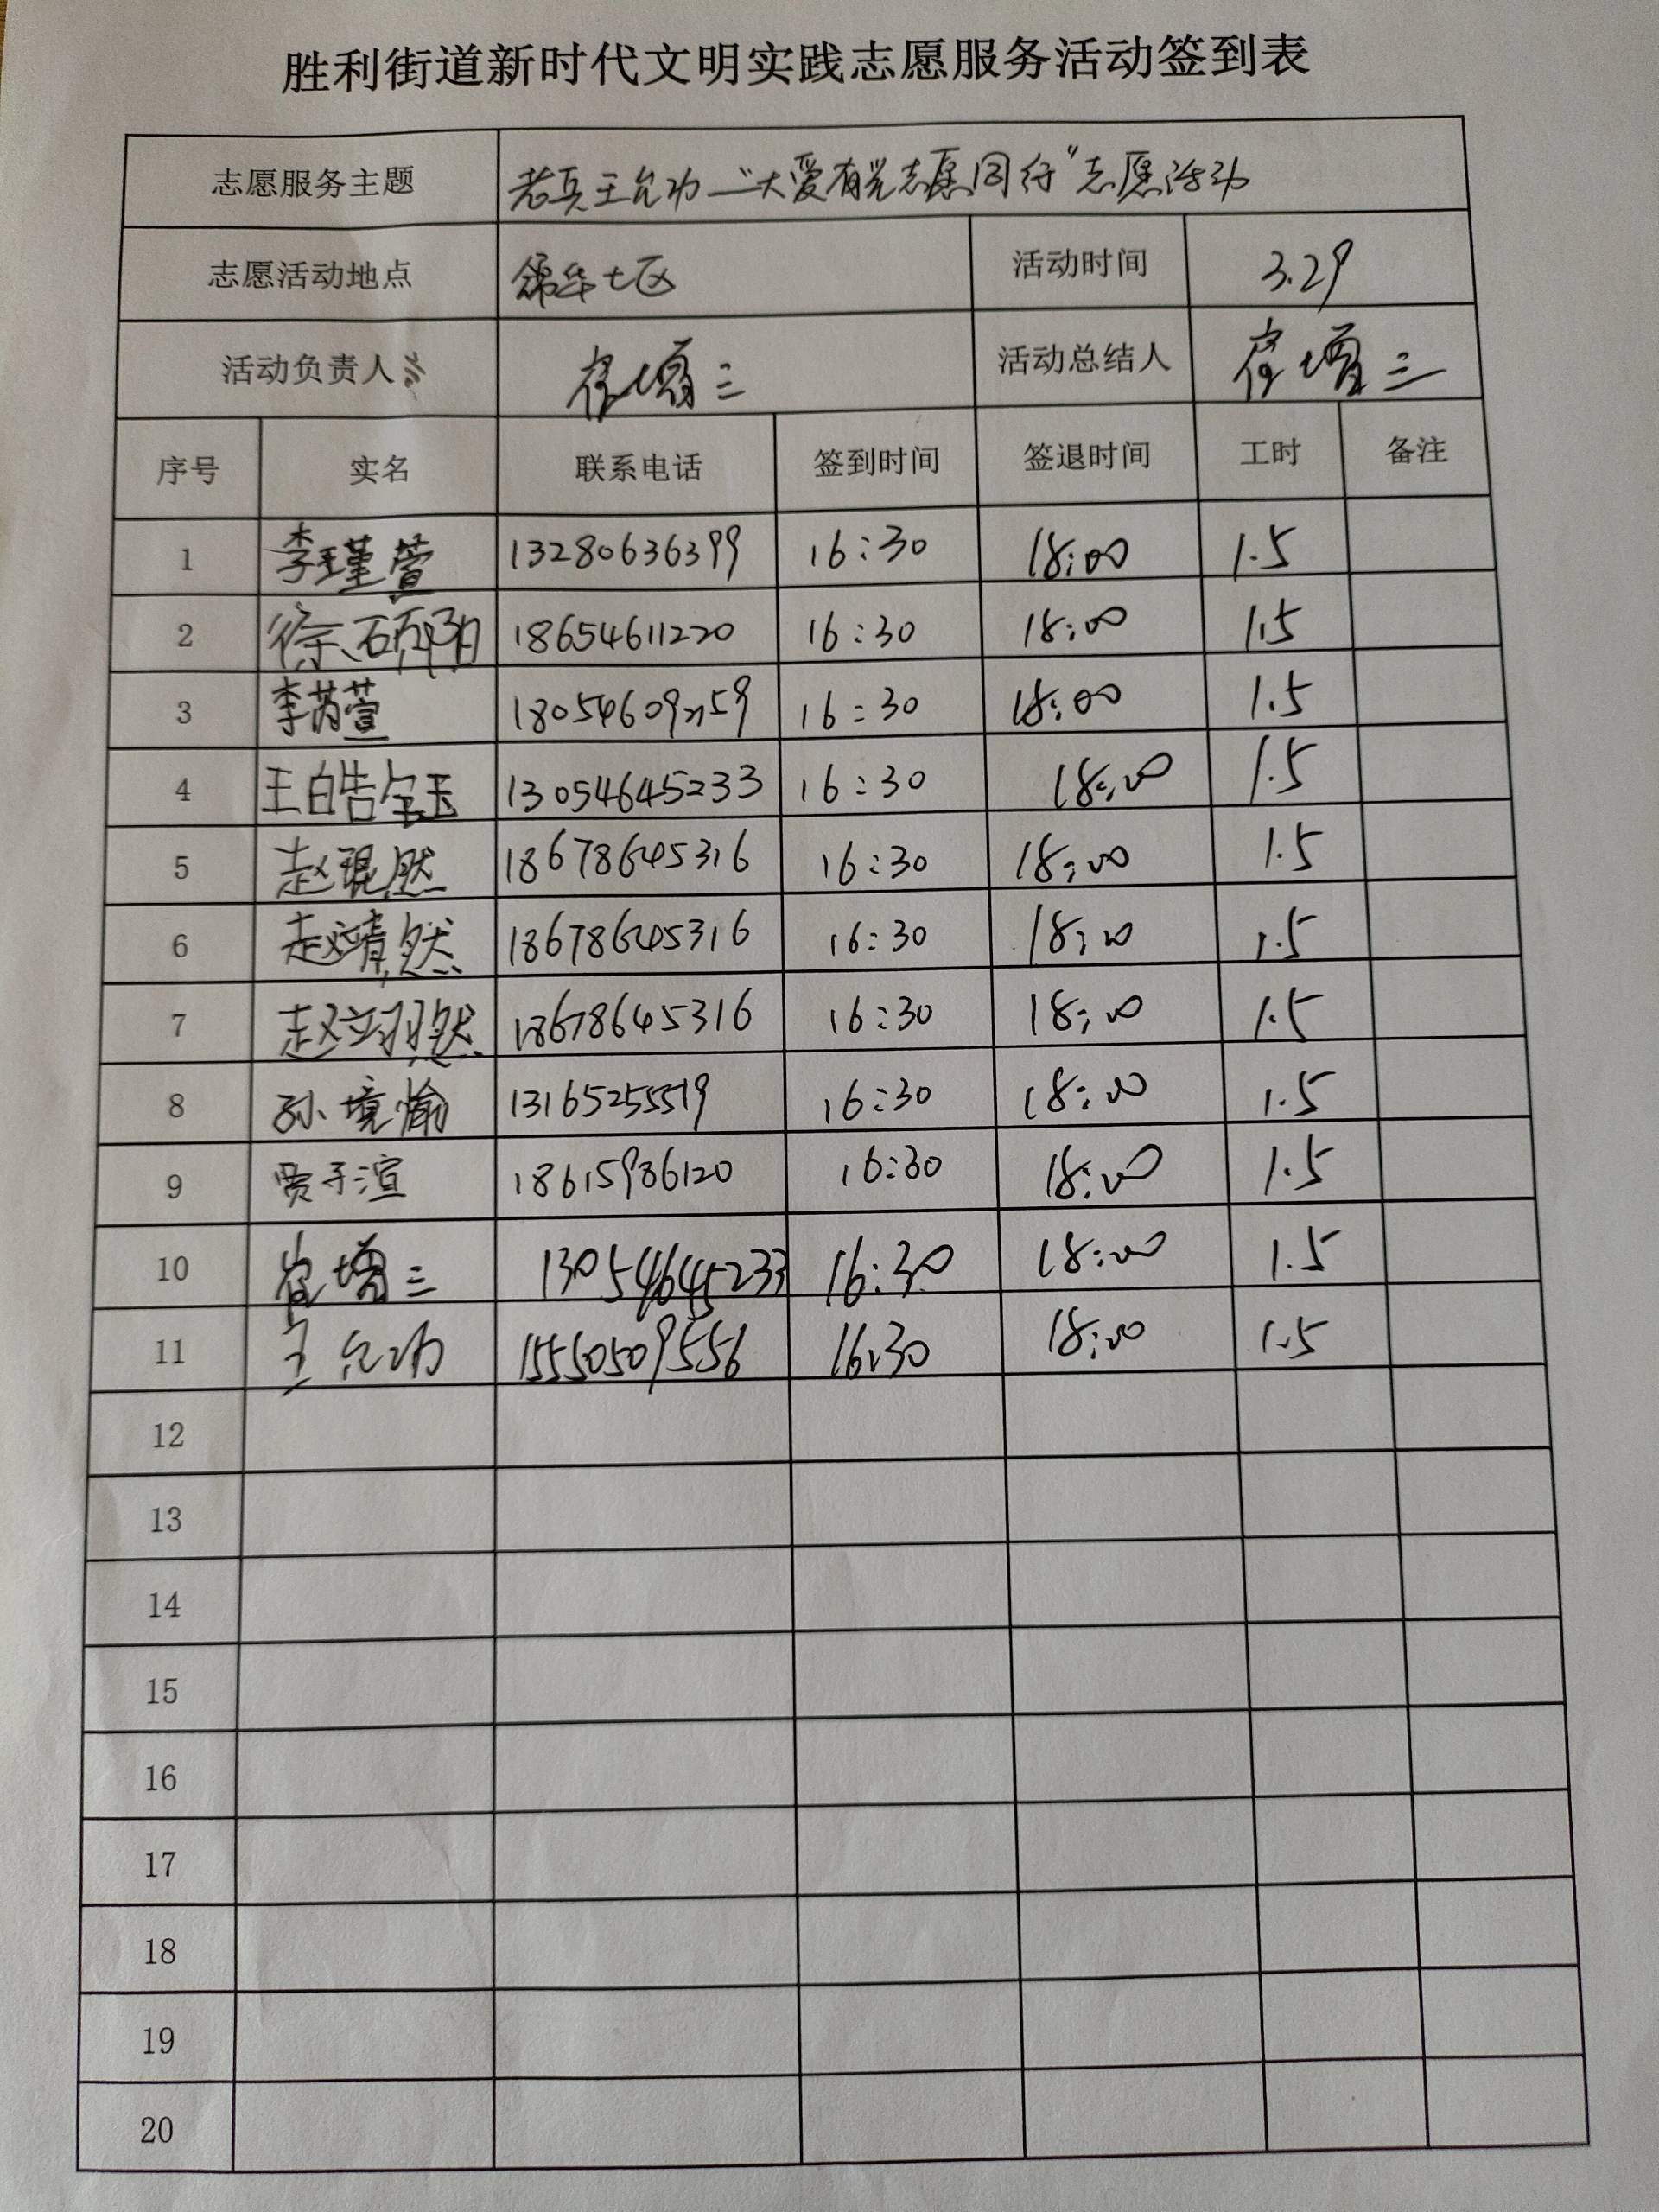 胜利街道新时代文明实践志愿服务活动签到表
志愿服务主题 老兵王允功—“大爱有光志愿同行”志愿活动
志愿活动地点 锦华七区 活动时间 3.29
活动负责人 崔增三 活动总结人 崔增三
序号 实名 联系电话 签到时间 签退时间 工时 备注
1 李瑾萱 13280636399 16:30 18:00 1.5
2 徐硕阳 18654611220 16:30 18:00 1.5
3 李芮萱 16:30 18:00 1.5
4 王皓钰 13054645233 16:30 18:00 1.5
5 赵琨然 18678645316 16:30 18:00 1.5
6 赵靖然 18678645316 16:30 18:00 1.5
7 赵翊然 18678645316 16:30 18:00 1.5
8 孙境愉 13165255519 16:30 18:00 1.5
9 贾子渲 18615986120 16:30 18:00 1.5
10 崔增三 13054645233 16:30 18:00 1.5
11 王允功 15550509556 16:30 18:00 1.5
12
13
14
15
16
17
18
19
20